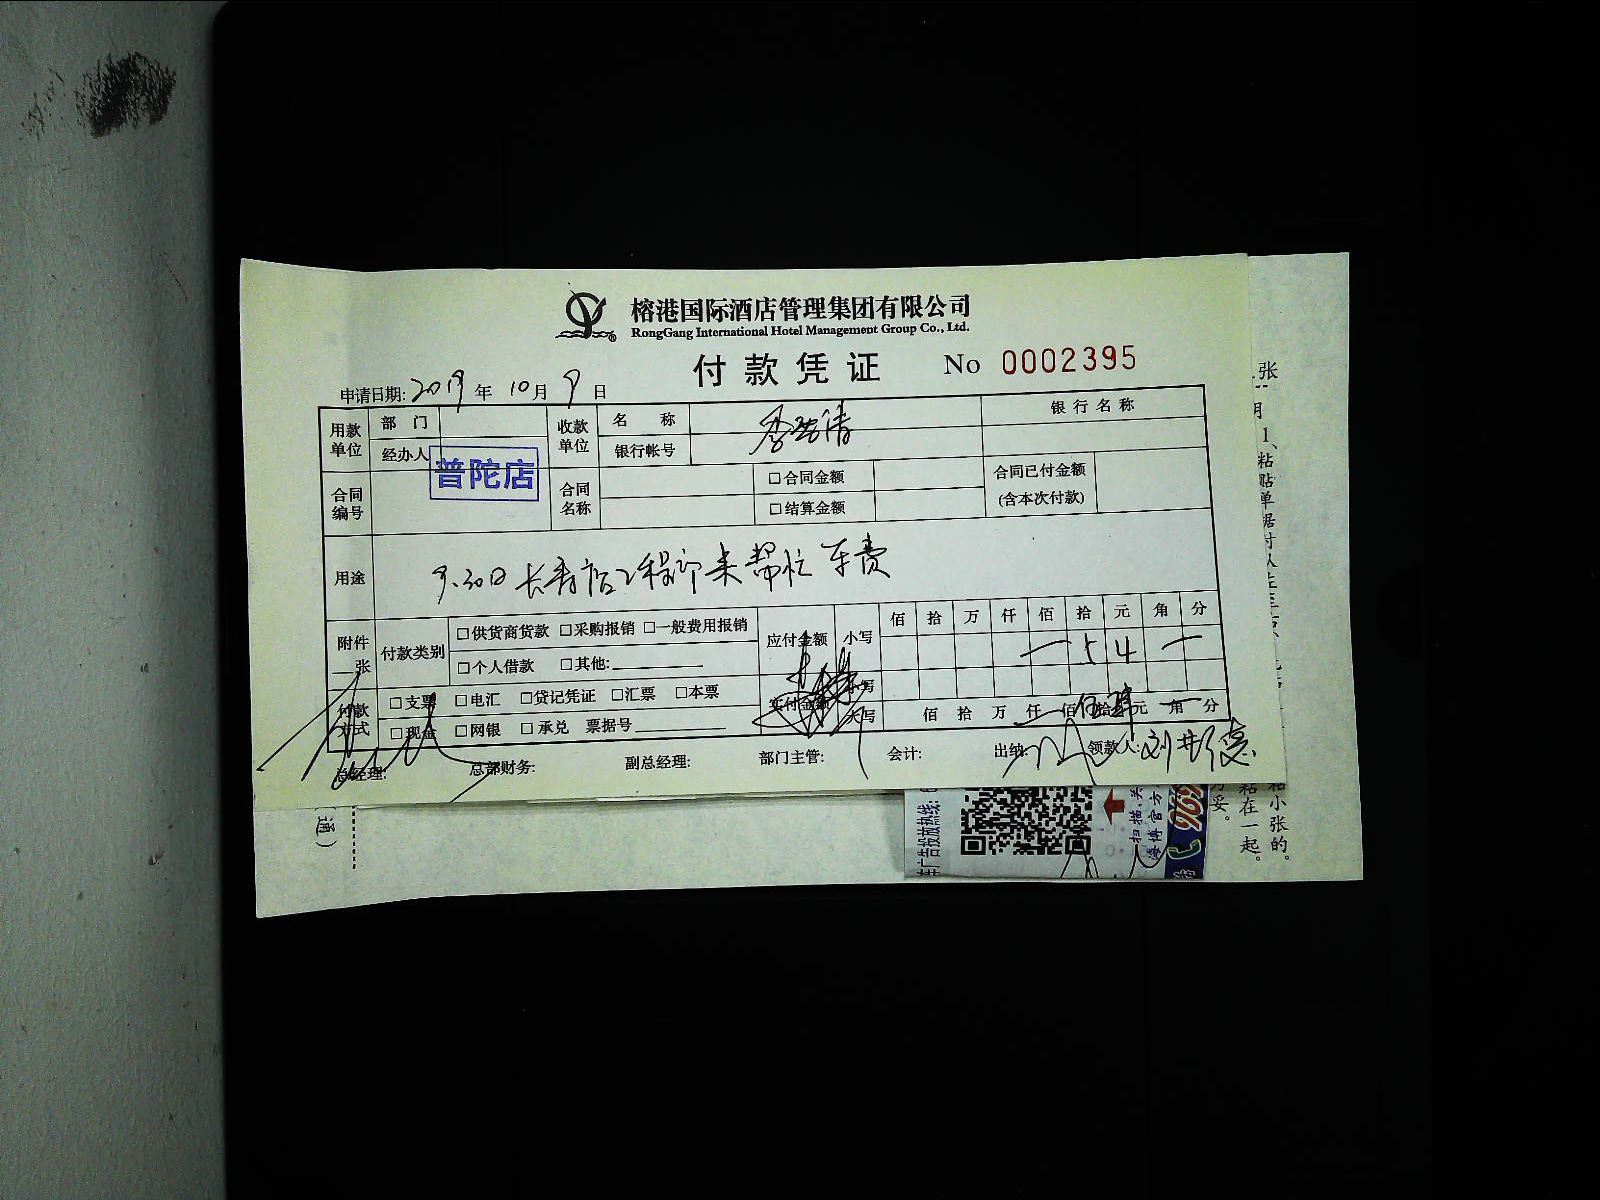 榕港国际酒店管理集团有限公司
RongGang International Hotel Management Group Co., Ltd.
付款凭证 No 0002395
申请日期: 2019 年 10 月 9 日
用款单位 部门 收款单位 名称 银行名称
经办人 银行帐号
普陀店
合同编号 合同名称 □合同金额 合同已付金额
□结算金额 (含本次付款)
用途 9.30日长寿店工程部来帮忙车费
附件 张 付款类别 □供货商货款 □采购报销 □一般费用报销 应付金额 小写 佰 拾 万 仟 佰 拾 元 角 分
□个人借款 □其他: 一 5 4 一
付款方式 □支票 □电汇 □贷记凭证 □汇票 □本票 实付金额 小写
□现金 □网银 □承兑 票据号 大写 佰 拾 万 仟 一 佰 伍 拾 肆 元 一 角 分
总经理: 总部财务: 副总经理: 部门主管: 会计: 出纳: 领款人:
张
月
1、粘贴单据时从左至右
粘小张的。
粘在一起。
方妥。
通)
车广告投放热线:
扫描,关
海博官方
969